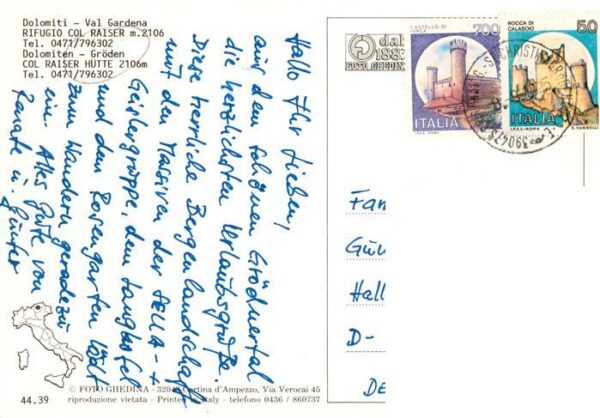 Dolomiti - Val Gardena
RIFUGIO COL RAISER m.2106
Tel. 0471/796302
Dolomiten - Gröden
COL RAISER HÜTTE 2106m
Tel. 0471/796302
Hallo Ihr Lieben,
aus dem schönen Grödnertal
die herzlichsten Urlaubsgrüße.
Diese herrliche Bergenlandschaft
mit den Massiven der SELLA- +
Geislergruppe, dem Langkofel
und dem Rosengarten lädt
zum Wandern geradezu
ein. Alles Gute von
Renate u. Günter
dal
188
FOTO GHEDINA
CASTELLO DI
IVREA
700
ITALIA
I.P.Z.S. ROMA
ROCCA DI
CALASCIO
50
ITALIA
I.P.Z.S. - ROMA
E. VANGELLI
39047 S.
Fan
Gü
Hall
D-
DE
© FOTO GHEDINA - 32043 Cortina d'Ampezzo, Via Verocai 45
riproduzione vietata - Printed in Italy - telefono 0436 / 860737
44.39